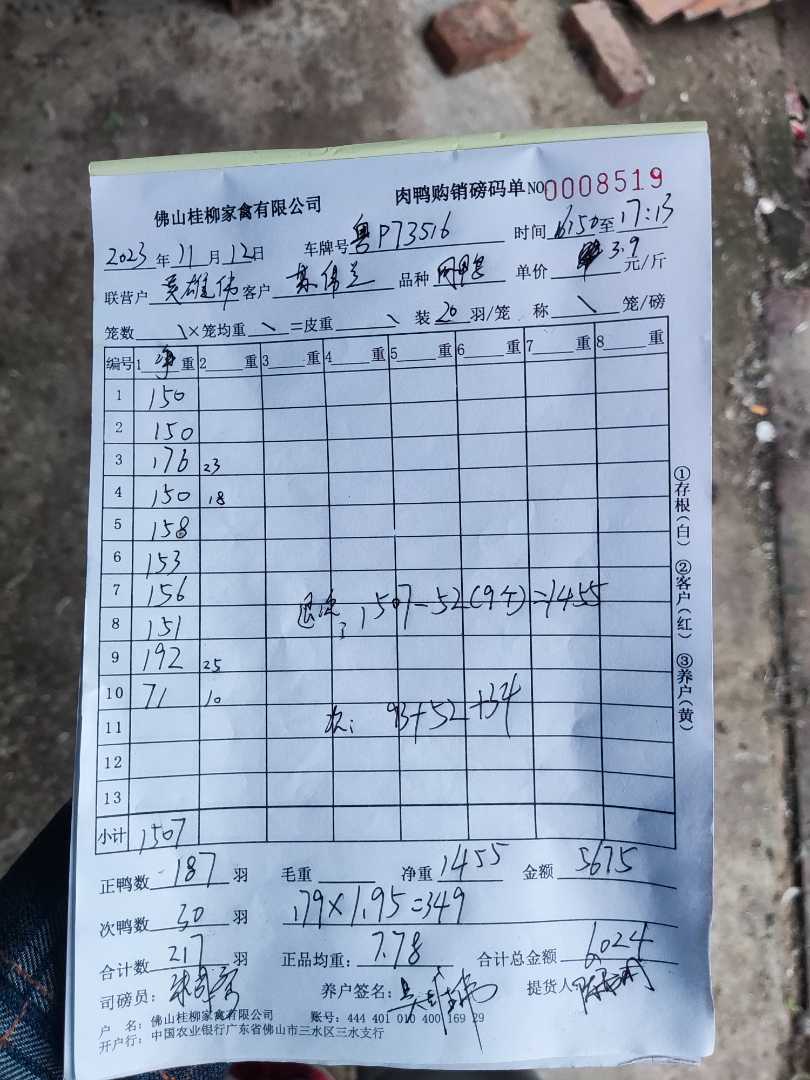 佛山桂柳家禽有限公司 肉鸭购销磅码单 NO 0008519
2023年11月12日 车牌号 粤P73516 时间 至17:13
联营户 吴雄伟 客户 品种 单价 3.9 元/斤
笼数 \ ×笼均重 \ =皮重 \ 装 20 羽/笼 称 \ 笼/磅
编号 1 净 重 2 重 3 重 4 重 5 重 6 重 7 重 8 重
1 150
2 150
3 176 23
4 150 18
5 158
6 153
7 156
8 151
退次 1507-52(9个)=1455
9 192 25
10 71 10
次: 93+52+34
11
12
13
小计 1507
正鸭数 187 羽 毛重 净重 1455 金额 5675
次鸭数 30 羽 179×1.95=349
合计数 217 羽 正品均重: 7.78 合计总金额 6024
司磅员: 养户签名: 吴雄伟 提货人
户 名: 佛山桂柳家禽有限公司 账号: 444 401 010 400 169 29
开户行: 中国农业银行广东省佛山市三水区三水支行
①存根(白) ②客户(红) ③养户(黄)